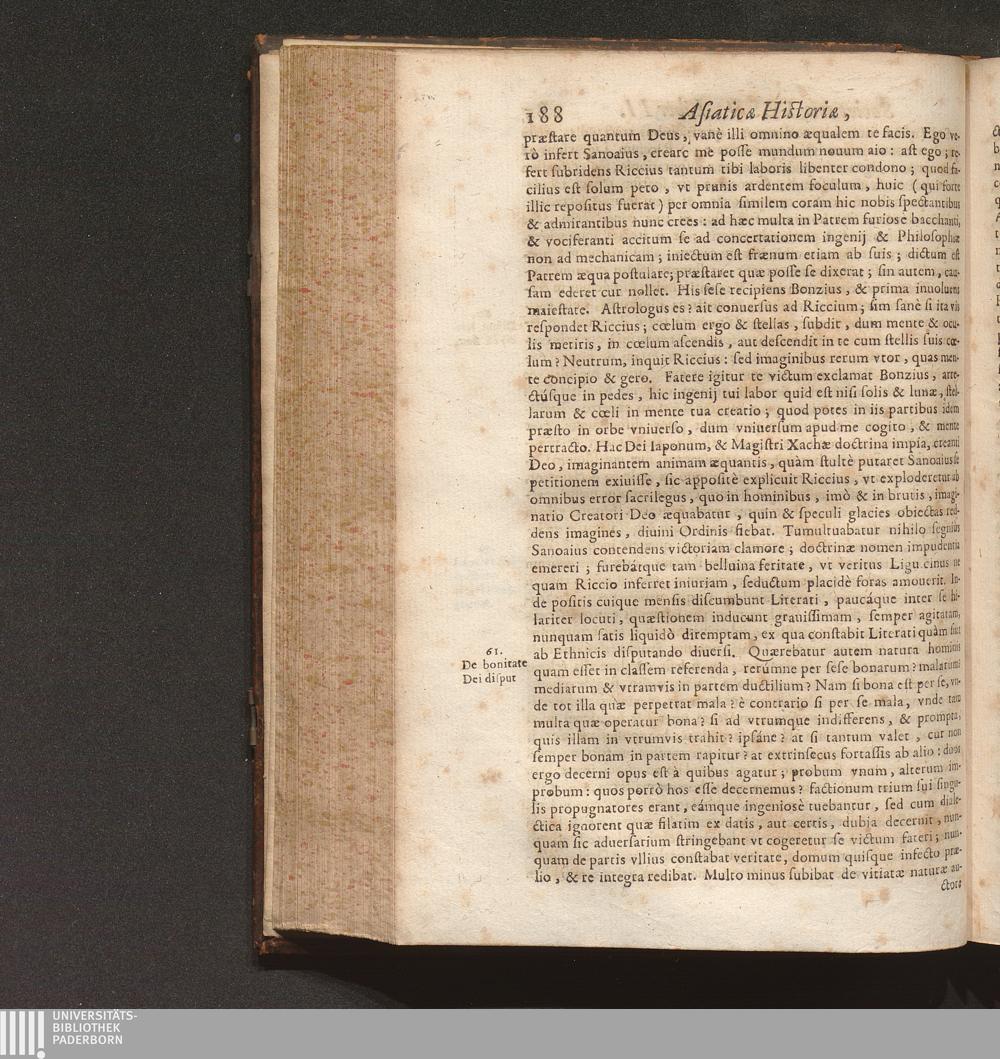 188 Asiaticæ Historiæ,
præstare quantum Deus, vanè illi omnino æqualem te facis. Ego ve-
rò infert Sanoaius, creare me posse mundum nouum aio: ast ego; re-
fert subridens Riccius tantum tibi laboris libenter condono; quod fa-
cilius est solum peto, vt prunis ardentem foculum, huic (qui forte
illic repositus fuerat) per omnia similem coram hic nobis spectantibus
& admirantibus nunc crees: ad hæc multa in Patrem furiosè bacchanti,
& vociferanti accitum se ad concertationem ingenij & Philosophiæ
non ad mechanicam; iniectum est frænum etiam ab suis; dictum est
Patrem æqua postulare; præstaret quæ posse se dixerat; sin autem, cau-
sam ederet cur nollet. His sese recipiens Bonzius, & prima inuolurus
maiestate. Astrologus es? ait conuersus ad Riccium; sim sanè si ita vis
respondet Riccius; cœlum ergo & stellas, subdit, dum mente & ocu-
lis metiris, in cœlum ascendis, aut descendit in te cum stellis suis cœ-
lum? Neutrum, inquit Riccius: sed imaginibus rerum vtor, quas men-
te concipio & gero. Fatere igitur te victum exclamat Bonzius, arre-
ctúsque in pedes, hic ingenij tui labor quid est nisi solis & lunæ, stel-
larum & cœli in mente tua creatio; quod potes in iis partibus idem
præsto in orbe vniuerso, dum vniuersum apud me cogito, & mente
pertracto. Hac Dei Iaponum, & Magistri Xachæ doctrina impia, creanti
Deo, imaginantem animam æquantis, quàm stultè putaret Sanoaius se
petitionem exiuisse, sic appositè explicuit Riccius, vt exploderetur ab
omnibus error sacrilegus, quo in hominibus, imò & in brutis, imagi-
natio Creatori Deo æquabatur, quin & speculi glacies obiectas red-
dens imagines, diuini Ordinis fiebat. Tumultuabatur nihilo segnius
Sanoaius contendens victoriam clamore; doctrinæ nomen impudentia
emereri; furebátque tam belluina feritate, vt veritus Ligu cinus ne
quam Riccio inferret iniuriam, seductum placidè foras amouerit. In-
de positis cuique mensis discumbunt Literati, paucáque inter se hi-
lariter locuti, quæstionem inducunt grauissimam, semper agitatam,
nunquam satis liquidò diremptam, ex qua constabit Literati quàm sint
ab Ethnicis disputando diuersi. Quærebatur autem natura hominis
61.
De bonitate
Dei disput
quam esset in classem referenda, rerúmne per sese bonarum? malarum?
mediarum & vtramvis in partem ductilium? Nam si bona est per se, vn-
de tot illa quæ perpetrat mala? è contrario si per se mala, vnde tam
multa quæ operatur bona? si ad vtrumque indifferens, & prompta,
quis illam in vtrumvis trahit? ipsáne? at si tantum valet, cur non
semper bonam in partem rapitur? at extrinsecus fortassis ab alio: duos
ergo decerni opus est à quibus agatur; probum vnum, alterum im-
probum: quos porrò hos esse decernemus? factionum trium sui singu-
lis propugnatores erant, eámque ingeniosè tuebantur, sed cum diale-
ctica ignorent quæ filatim ex datis, aut certis, dubia decernit, nun-
quam sic aduersarium stringebant vt cogeretur se victum fateri; nun-
quam de partis vllius constabat veritate, domum quisque infecto præ-
lio, & re integra redibat. Multo minus subibat de vitiatæ naturæ au-
ctore
UNIVERSITÄTS-
BIBLIOTHEK
PADERBORN